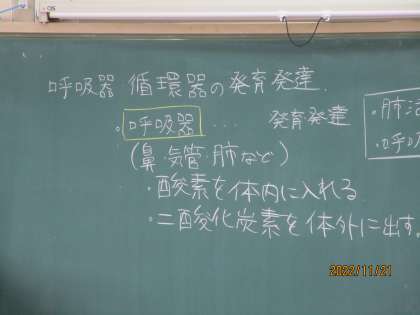 呼吸器 循環器の発育発達.
・呼吸器 … 発育発達
(鼻・気管・肺など)
・酸素を体内に入れる
・二酸化炭素を体外に出す。
・肺活
・呼吸
2022/11/21